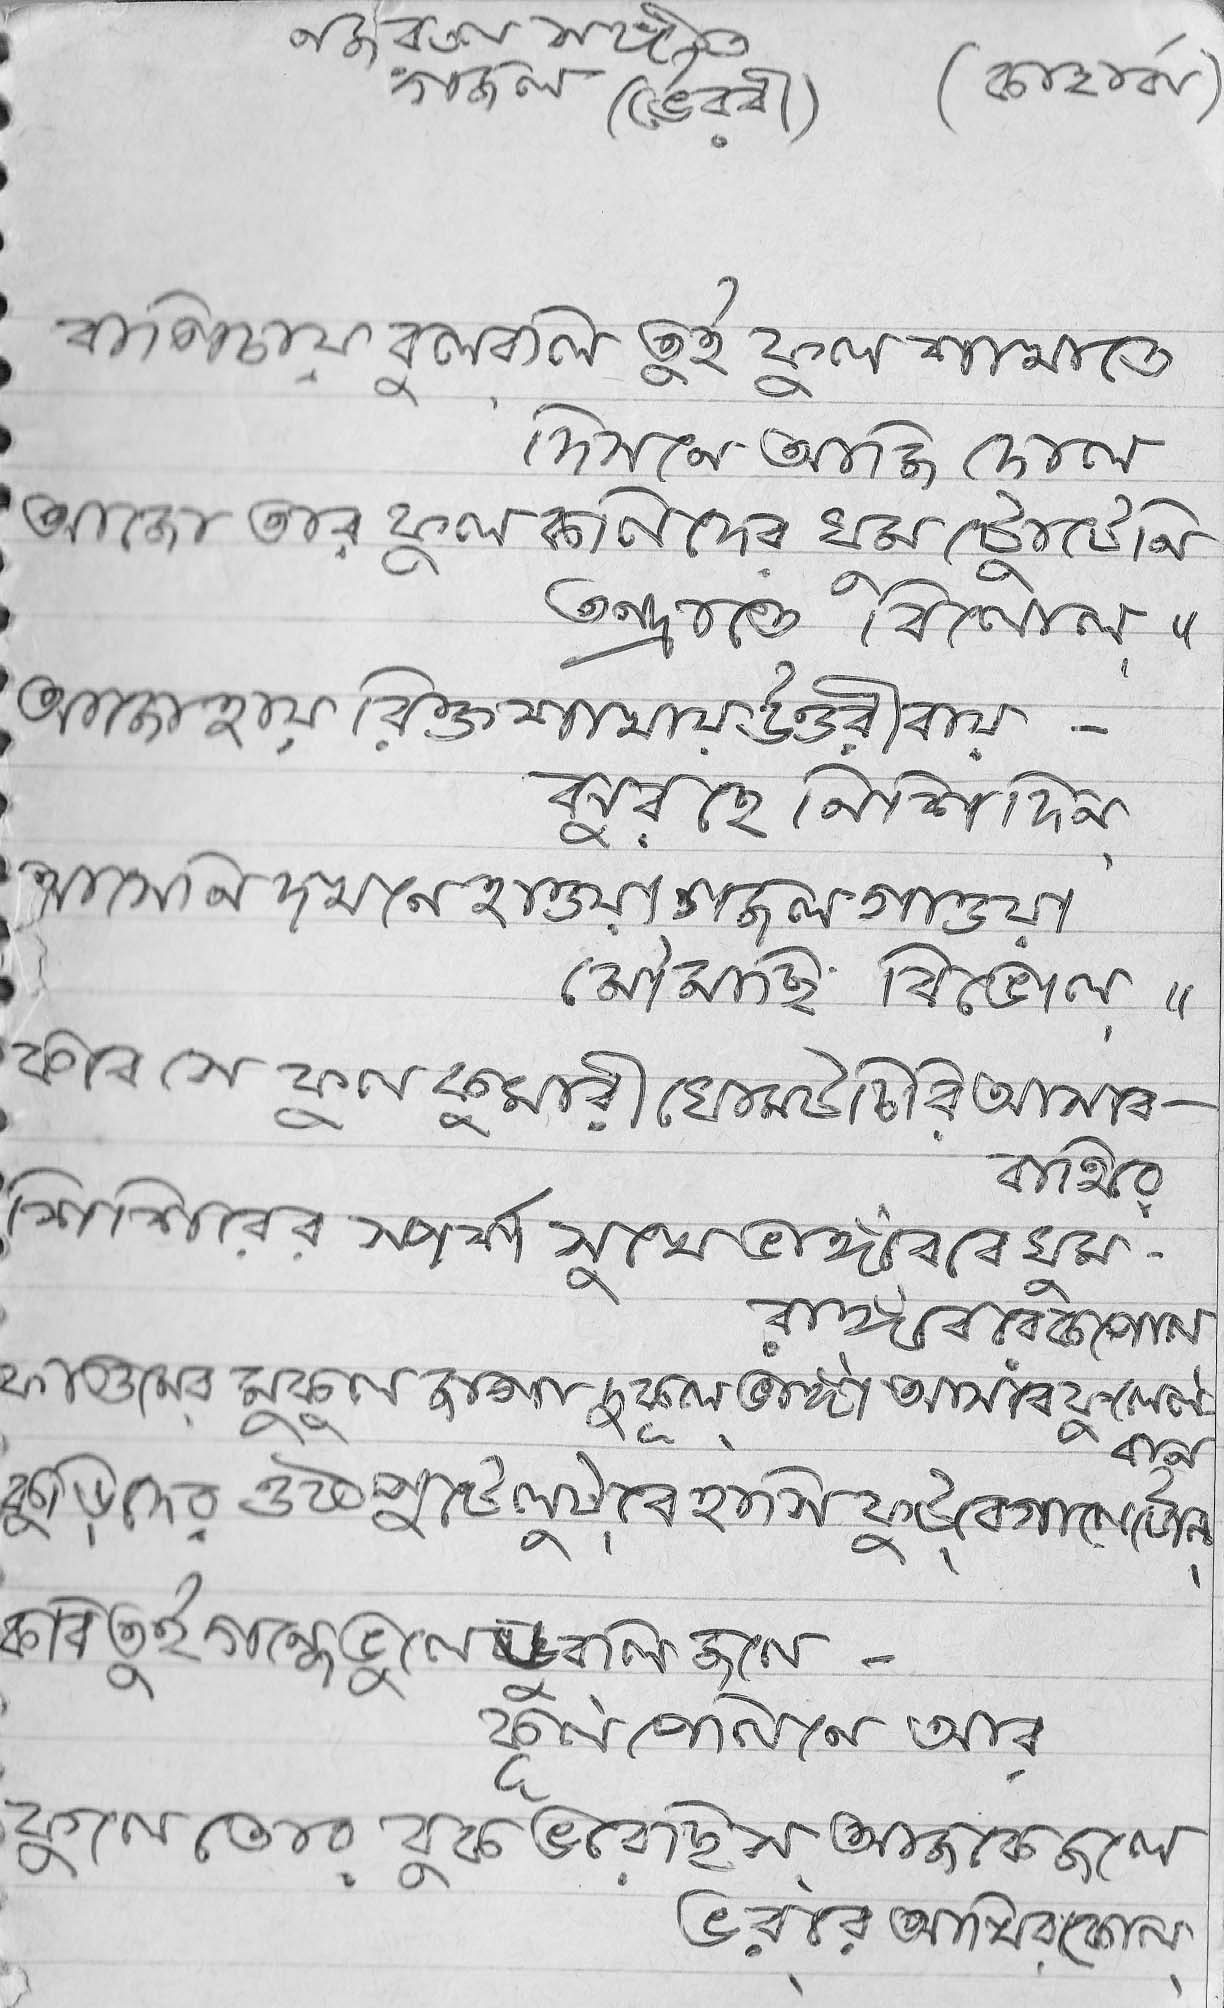 নজরুল সঙ্গীত
গজল (ভৈরবী) (কাহার্বা)
বাগিচায় বুলবুলি তুই ফুল শাখাতে
দিসনে আজি দোল
আজো তার ফুল কলিদের ঘুম টোটেনি
তন্দ্রাতে বিলোল্ ॥
আজো হায় রিক্ত শাখায় উত্তরী বায় –
ঝুরছে নিশি দিন্
আসেনি দখনে হাওয়া গজল গাওয়া
মৌমাছি বিভোল্ ॥
কবে সে ফুল কুমারী ঘোমটা চিরি আসবে –
বাহিরে
শিশিরের স্পর্শ সুখে ভাঙ্গবে রে ঘুম -
রাঙ্গবে রে কপোল
ফাগুনের মুকুল জাগা দুকূল্ ভাঙ্গা আসবে ফুলেল
বান
কুড়িদের ওষ্ঠ পুটে লুট্বে হাসি ফুট্বে গালে টোল্
কবি তুই গন্ধে ভুলে ডুবলি জলে –
কূল পেলিনে আর
ফুলে তোর বুক ভরেছিস্ আজকে জলে
ভর্ রে আখির কোল্